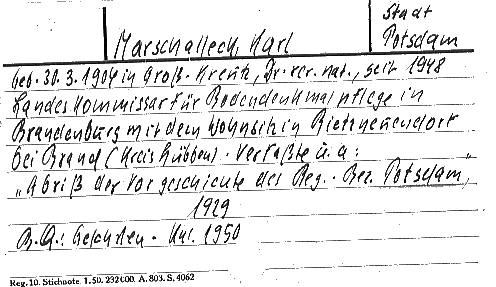 Stadt
Marschalleck, Karl Potsdam
geb. 30.3.1904 in Groß-Kreutz, Dr. rer. nat., seit 1948
Landeskommissar für Bodendenkmalpflege in
Brandenburg mit dem Wohnsitz in Rietzneuendorf
bei Brand (Kreis Lübben). Verfaßte u. a.:
„Abriß der Vorgeschichte des Reg.-Bez. Potsdam,"
1929
B.Qu.: Gelehrten-Kal. 1950
Reg. 10. Stichnote. 1. 50. 232000. A. 803. S. 4062